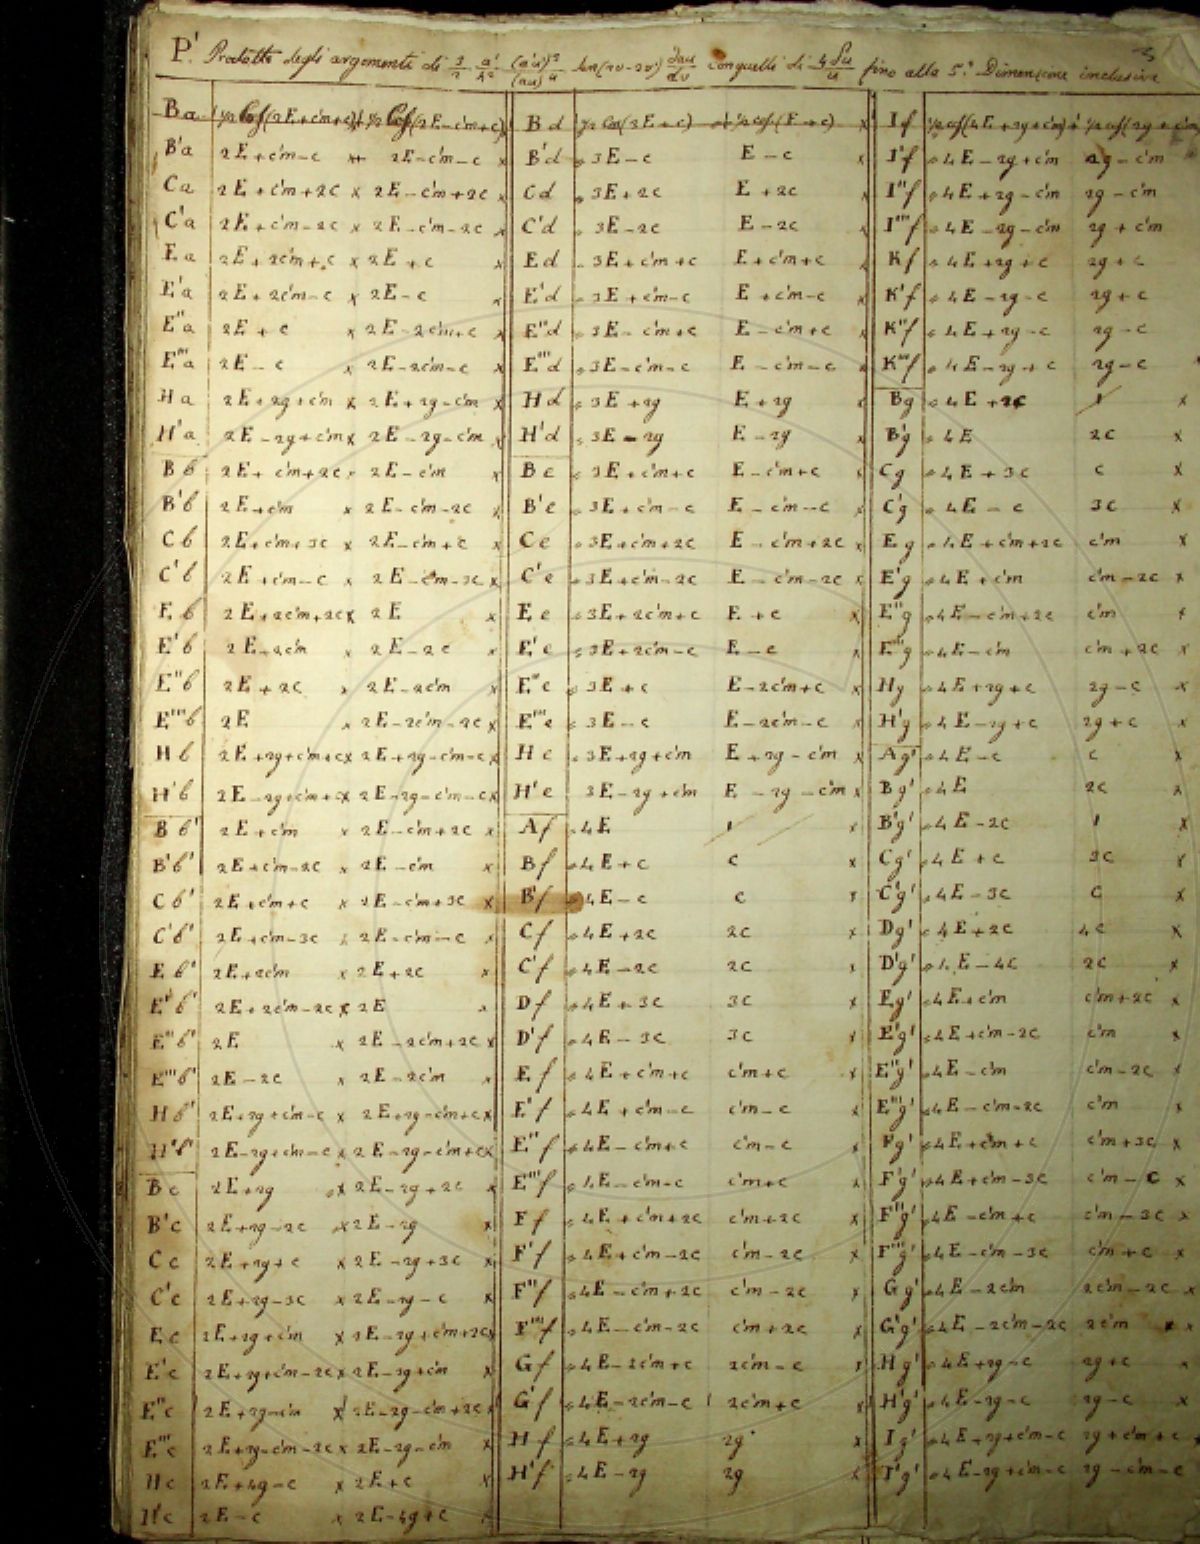 P'. Prodotti degli argomenti di 3/2 a'/h² (a'u')³/(au)⁴ sen(2v-2v') dau/dv con quelli di 4δu/u fino alla 5.ª Dimensione inclusive
Ba ½ Cos(2E+c'm+c) + ½ Cos(2E-c'm+c)
B'a 2E+c'm-c x 2E-c'm-c x
Ca 2E+c'm+2c x 2E-c'm+2c x
C'a 2E+c'm-2c x 2E-c'm-2c x
Ea 2E+2c'm+c x 2E+c x
E'a 2E+2c'm-c x 2E-c x
E''a 2E+c x 2E-2c'm+c x
E'''a 2E-c x 2E-2c'm-c x
Ha 2E+2g+c'm x 2E+2g-c'm x
H'a 2E-2g+c'm x 2E-2g-c'm x
Bb 2E+c'm+2c x 2E-c'm x
B'b 2E+c'm x 2E-c'm-2c x
Cb 2E+c'm+3c x 2E-c'm+c x
C'b 2E+c'm-c x 2E-c'm-3c x
Eb 2E+2c'm+2c x 2E x
E'b 2E+2c'm x 2E-2c x
E''b 2E+2c x 2E-2c'm x
E'''b 2E x 2E-2c'm-2c x
Hb 2E+2g+c'm+c x 2E+2g-c'm-c x
H'b 2E-2g+c'm+c x 2E-2g-c'm-c x
Bb' 2E+c'm x 2E-c'm+2c x
B'b' 2E+c'm-2c x 2E-c'm x
Cb' 2E+c'm+c x 2E-c'm+3c x
C'b' 2E+c'm-3c x 2E-c'm-c x
Eb' 2E+2c'm x 2E+2c x
E'b' 2E+2c'm-2c x 2E x
E''b' 2E x 2E-2c'm+2c x
E'''b' 2E-2c x 2E-2c'm x
Hb' 2E+2g+c'm-c x 2E+2g-c'm+c x
H'b' 2E-2g+c'm-c x 2E-2g-c'm+c x
Bc 2E+2g x 2E-2g+2c x
B'c 2E+2g-2c x 2E-2g x
Cc 2E+2g+c x 2E-2g+3c x
C'c 2E+2g-3c x 2E-2g-c x
Ec 2E+2g+c'm x 2E-2g+c'm+2c x
E'c 2E+2g+c'm-2c x 2E-2g+c'm x
E''c 2E+2g-c'm x 2E-2g-c'm+2c x
E'''c 2E+2g-c'm-2c x 2E-2g-c'm x
Hc 2E+4g-c x 2E+c x
H'c 2E-c x 2E-4g+c x
Bd ½ Cos(3E+c) + ½ cos(E+c) x
B'd 3E-c E-c x
Cd 3E+2c E+2c x
C'd 3E-2c E-2c x
Ed 3E+c'm+c E+c'm+c x
E'd 3E+c'm-c E+c'm-c x
E''d 3E-c'm+c E-c'm+c x
E'''d 3E-c'm-c E-c'm-c x
Hd 3E+2g E+2g x
H'd 3E-2g E-2g x
Be 3E+c'm+c E-c'm+c x
B'e 3E+c'm-c E-c'm-c x
Ce 3E+c'm+2c E-c'm+2c x
C'e 3E+c'm-2c E-c'm-2c x
Ee 3E+2c'm+c E+c x
E'e 3E+2c'm-c E-c x
E''e 3E+c E-2c'm+c x
E'''e 3E-c E-2c'm-c x
He 3E+2g+c'm E+2g-c'm x
H'e 3E-2g+c'm E-2g-c'm x
Af 4E 1 x
Bf 4E+c c x
B'f 4E-c c x
Cf 4E+2c 2c x
C'f 4E-2c 2c x
Df 4E+3c 3c x
D'f 4E-3c 3c x
Ef 4E+c'm+c c'm+c x
E'f 4E+c'm-c c'm-c x
E''f 4E-c'm+c c'm-c x
E'''f 4E-c'm-c c'm+c x
Ff 4E+c'm+2c c'm+2c x
F'f 4E+c'm-2c c'm-2c x
F''f 4E-c'm+2c c'm-2c x
F'''f 4E-c'm-2c c'm+2c x
Gf 4E-2c'm+c 2c'm-c x
G'f 4E-2c'm-c 2c'm+c x
Hf 4E+2g 2g x
H'f 4E-2g 2g x
If ½ cos(4E+2g+c'm) + ½ cos(2g+c'm)
I'f 4E-2g+c'm 2g-c'm
I''f 4E+2g-c'm 2g-c'm
I'''f 4E-2g-c'm 2g+c'm
Kf 4E+2g+c 2g+c
K'f 4E-2g-c 2g+c
K''f 4E+2g-c 2g-c
K'''f 4E-2g+c 2g-c
Bg 4E+2c 1 x
B'g 4E 2c x
Cg 4E+3c c x
C'g 4E-c 3c x
Eg 4E+c'm+2c c'm x
E'g 4E+c'm c'm-2c x
E''g 4E-c'm+2c c'm x
E'''g 4E-c'm c'm+2c x
Hg 4E+2g+c 2g-c x
H'g 4E-2g+c 2g+c x
Ag' 4E-c c x
Bg' 4E 2c x
B'g' 4E-2c 1 x
Cg' 4E+c 3c x
C'g' 4E-3c c x
Dg' 4E+2c 4c x
D'g' 4E-4c 2c x
Eg' 4E+c'm c'm+2c x
E'g' 4E+c'm-2c c'm x
E''g' 4E-c'm c'm-2c x
E'''g' 4E-c'm-2c c'm x
Fg' 4E+c'm+c c'm+3c x
F'g' 4E+c'm-3c c'm-c x
F''g' 4E-c'm+c c'm-3c x
F'''g' 4E-c'm-3c c'm+c x
Gg' 4E-2c'm 2c'm-2c x
G'g' 4E-2c'm-2c 2c'm x
Hg' 4E+2g-c 2g+c x
H'g' 4E-2g-c 2g-c x
Ig' 4E+2g+c'm-c 2g+c'm+c x
I'g' 4E-2g+c'm-c 2g-c'm-c